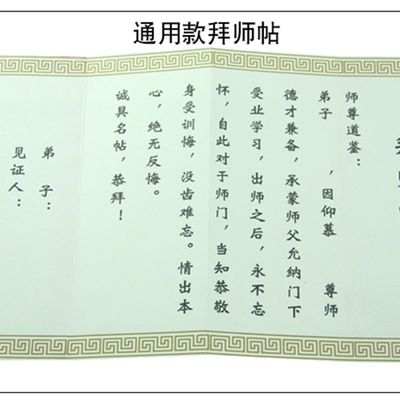 通用款拜师帖
师尊道鉴：
弟子　　，因仰慕　　尊师
德才兼备，承蒙师父允纳门下
受业学习，出师之后，永不忘
怀，自此对于师门，当知恭敬
身受训悔，没齿难忘。情出本
心，绝无反悔。
诚具名帖，恭拜！
弟　子：
见证人：